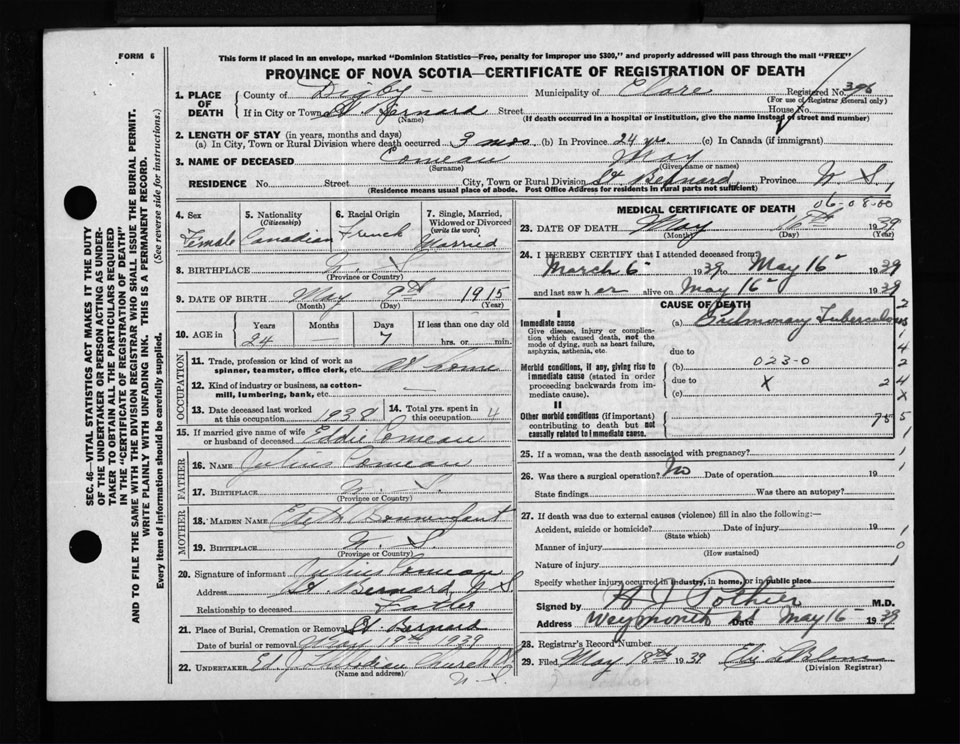 FORM 6
This form if placed in an envelope, marked "Dominion Statistics—Free, penalty for improper use $300," and properly addressed will pass through the mail "FREE"
PROVINCE OF NOVA SCOTIA—CERTIFICATE OF REGISTRATION OF DEATH
1. PLACE OF DEATH
County of Digby Municipality of Clare Registered No. 396
(For use of Registrar General only)
If in City or Town St Bernard Street House No.
(Name) (If death occurred in a hospital or institution, give the name instead of street and number)
2. LENGTH OF STAY (in years, months and days)
(a) In City, Town or Rural Division where death occurred 3 mos (b) In Province 24 yrs. (c) In Canada (if immigrant)
3. NAME OF DECEASED Comeau May
(Surname) (Given name or names)
RESIDENCE No. Street City, Town or Rural Division St Bernard Province N S,
(Residence means usual place of abode. Post Office Address for residents in rural parts not sufficient)
4. Sex
Female
5. Nationality (Citizenship)
Canadian
6. Racial Origin
French
7. Single, Married, Widowed or Divorced (write the word)
Married
8. BIRTHPLACE N. S
(Province or Country)
9. DATE OF BIRTH May 9th 1915
(Month) (Day) (Year)
10. AGE in
Years Months Days If less than one day old
24 — 7 hrs. or min.
OCCUPATION
11. Trade, profession or kind of work as spinner, teamster, office clerk, etc. At home
12. Kind of industry or business, as cotton-mill, lumbering, bank, etc. —
13. Date deceased last worked at this occupation 1938
14. Total yrs. spent in this occupation 4
15. If married give name of wife or husband of deceased Eddie Comeau
FATHER
16. NAME Julius Comeau
17. BIRTHPLACE N. S.
(Province or Country)
MOTHER
18. MAIDEN NAME
19. BIRTHPLACE N. S.
(Province or Country)
20. Signature of informant Julius Comeau
Address St. Bernard N S
Relationship to deceased Father
21. Place of Burial, Cremation or Removal St Bernard
Date of burial or removal May 1939
22. UNDERTAKER Church
N. S.
(Name and address)
MEDICAL CERTIFICATE OF DEATH
06-08-00
23. DATE OF DEATH May 1939
(Month) (Day) (Year)
24. I HEREBY CERTIFY that I attended deceased from
March 6 1939 to May 16 1939
and last saw her alive on May 16 1939
CAUSE OF DEATH
I
Immediate cause
Give disease, injury or complication which caused death, not the mode of dying, such as heart failure, asphyxia, asthenia, etc.
(a) Pulmonary Tuberculosis
due to
Morbid conditions, if any, giving rise to immediate cause (stated in order proceeding backwards from immediate cause).
(b) 023-0
due to X
(c)
II
Other morbid conditions (if important) contributing to death but not causally related to immediate cause.
75
25. If a woman, was the death associated with pregnancy?
26. Was there a surgical operation? No Date of operation 19
State findings Was there an autopsy?
27. If death was due to external causes (violence) fill in also the following:—
Accident, suicide or homicide? Date of injury 19
(State which)
Manner of injury
(How sustained)
Nature of injury
Specify whether injury occurred in industry, in home, or in public place
Signed by A J Pothier M.D.
Address Weymouth Date May 16 1939
28. Registrar's Record Number
29. Filed May 18th 1939
(Division Registrar)
SEC. 46—VITAL STATISTICS ACT MAKES IT THE DUTY OF THE UNDERTAKER OR PERSON ACTING AS UNDERTAKER TO OBTAIN ALL THE PARTICULARS REQUIRED IN THE "CERTIFICATE OF REGISTRATION OF DEATH" AND TO FILE THE SAME WITH THE DIVISION REGISTRAR WHO SHALL ISSUE THE BURIAL PERMIT.
WRITE PLAINLY WITH UNFADING INK. THIS IS A PERMANENT RECORD.
Every item of information should be carefully supplied. (See reverse side for instructions.)